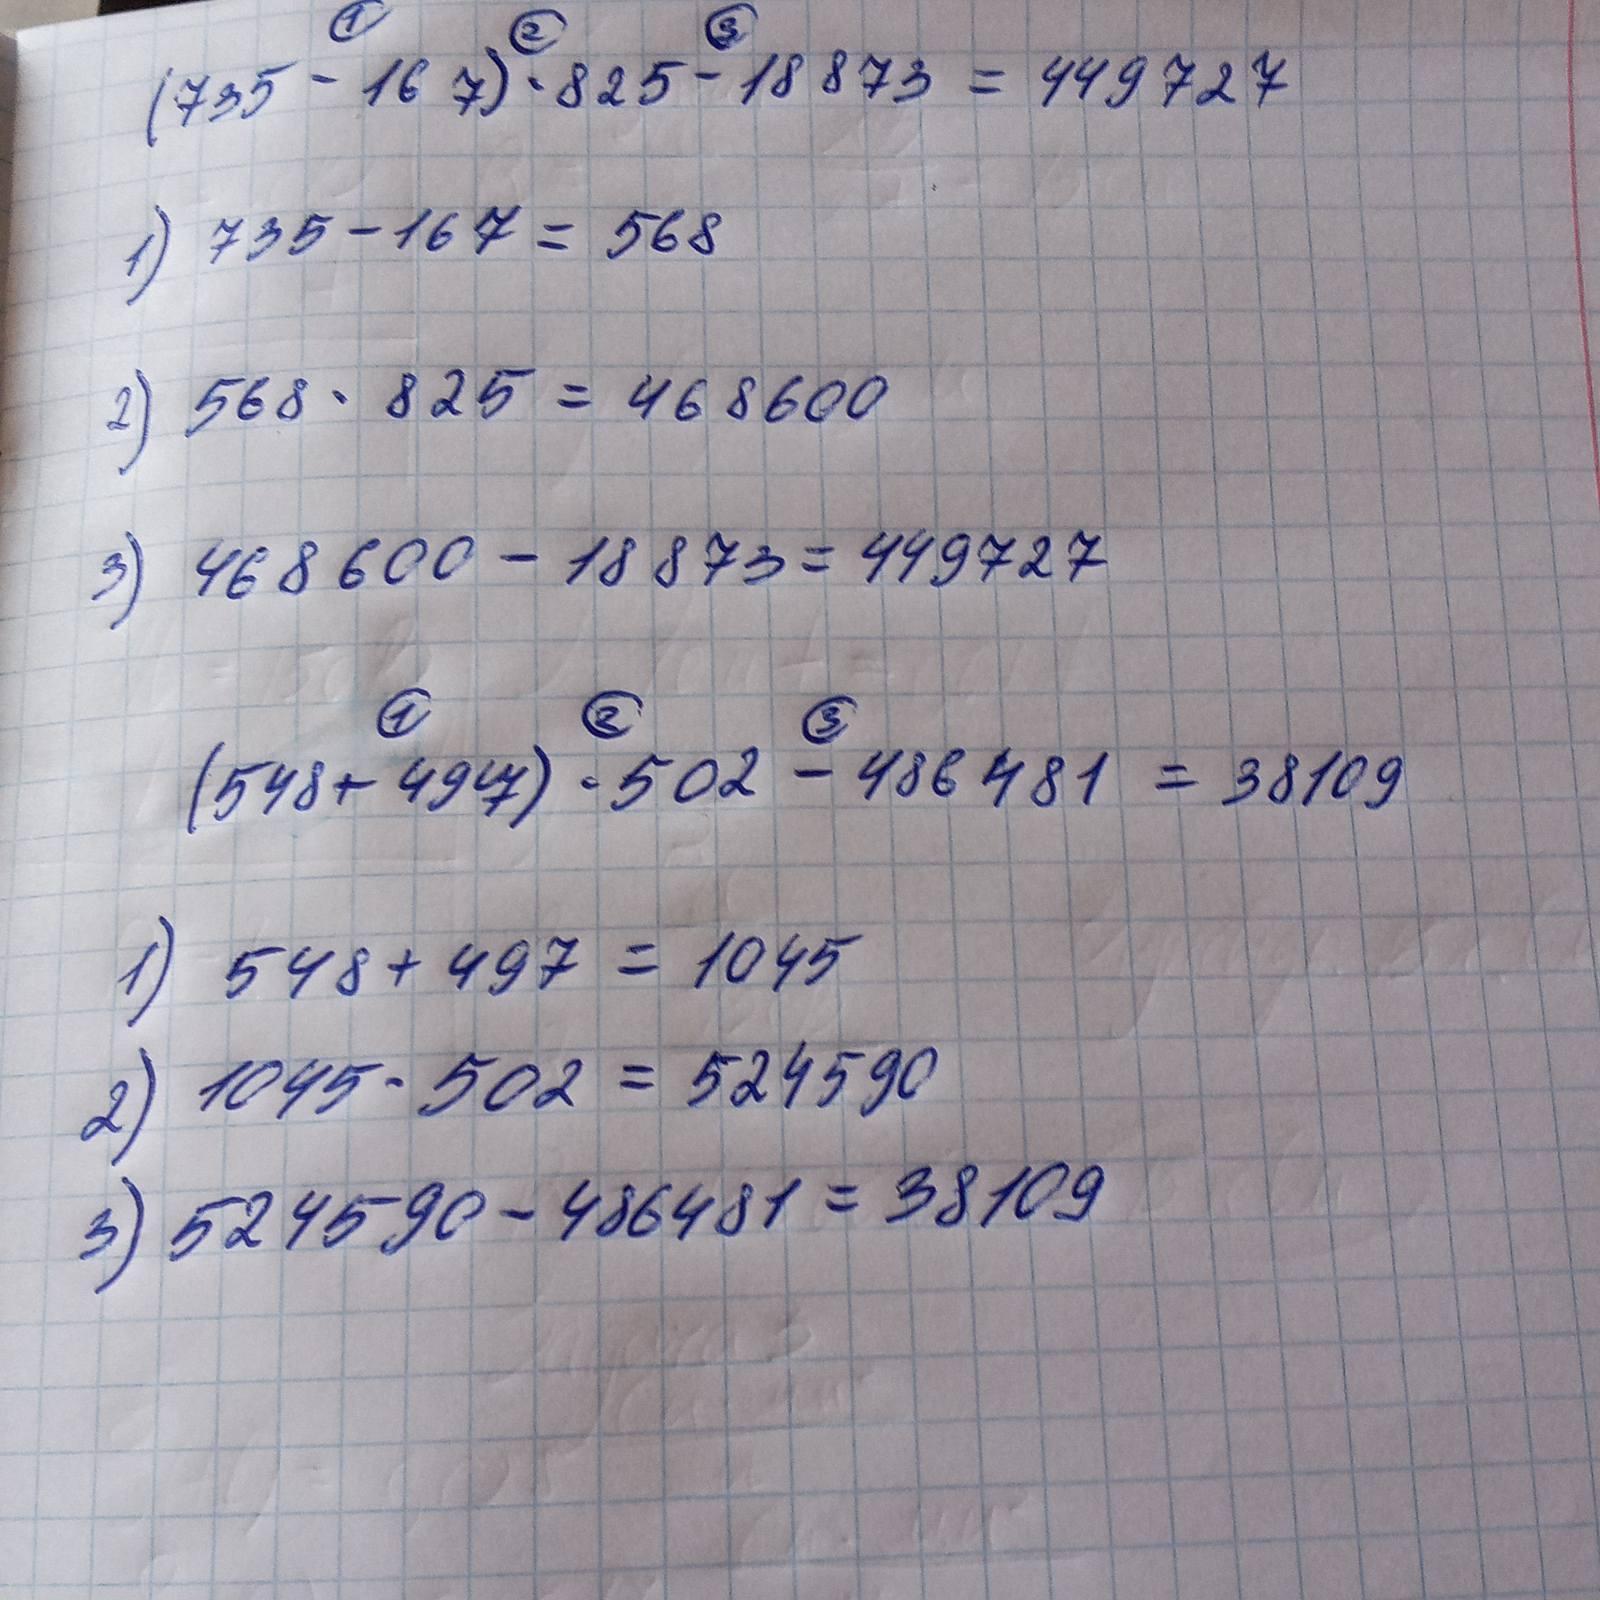 ① ② ③
(735 - 167) · 825 - 18873 = 449727
1) 735 - 167 = 568
2) 568 · 825 = 468600
3) 468600 - 18873 = 449727
① ② ③
(548 + 497) · 502 - 486481 = 38109
1) 548 + 497 = 1045
2) 1045 · 502 = 524590
3) 524590 - 486481 = 38109